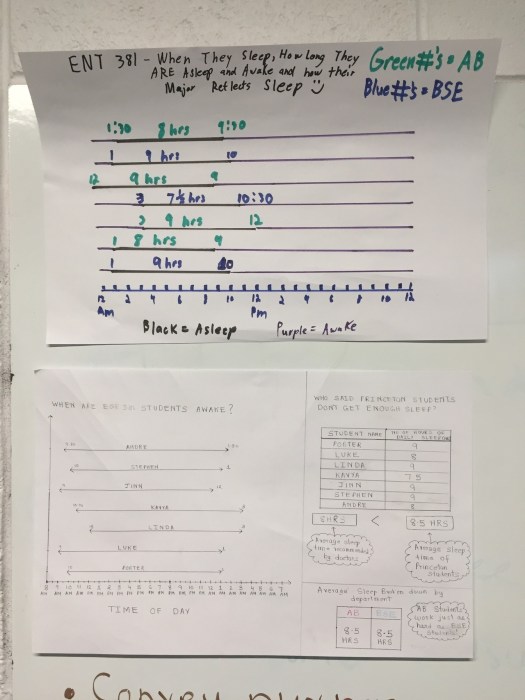 ENT 381 - When They Sleep, How Long They
ARE Asleep and Awake and how their
Major Reflects Sleep
Green #'s = AB
Blue #'s = BSE
1:30 8 hrs 9:30
1 9 hrs 10
12 9 hrs 9
3 7½ hrs 10:30
3 9 hrs 12
1 8 hrs 9
1 9 hrs 10
12 2 4 6 8 10 12 2 4 6 8 10 12
Am Pm
Black = Asleep Purple = Awake
WHEN ARE STUDENTS AWAKE?
ANDRE
STEPHEN
JINN
KAVYA
LINDA
LUKE
PORTER
TIME OF DAY
WHO SAID PRINCETON STUDENTS
DON'T GET ENOUGH SLEEP?
STUDENT NAME
PORTER 9
LUKE 8
LINDA 9
KAVYA 7.5
JINN 9
STEPHEN 9
ANDRE 8
8 HRS < 8.5 HRS
Average sleep
time recommended
by doctors
Average sleep
time of
Princeton
students
Average Sleep Broken down by
department
AB BSE
8.5 8.5
HRS HRS
AB Students
work just as
hard as BSE
students!